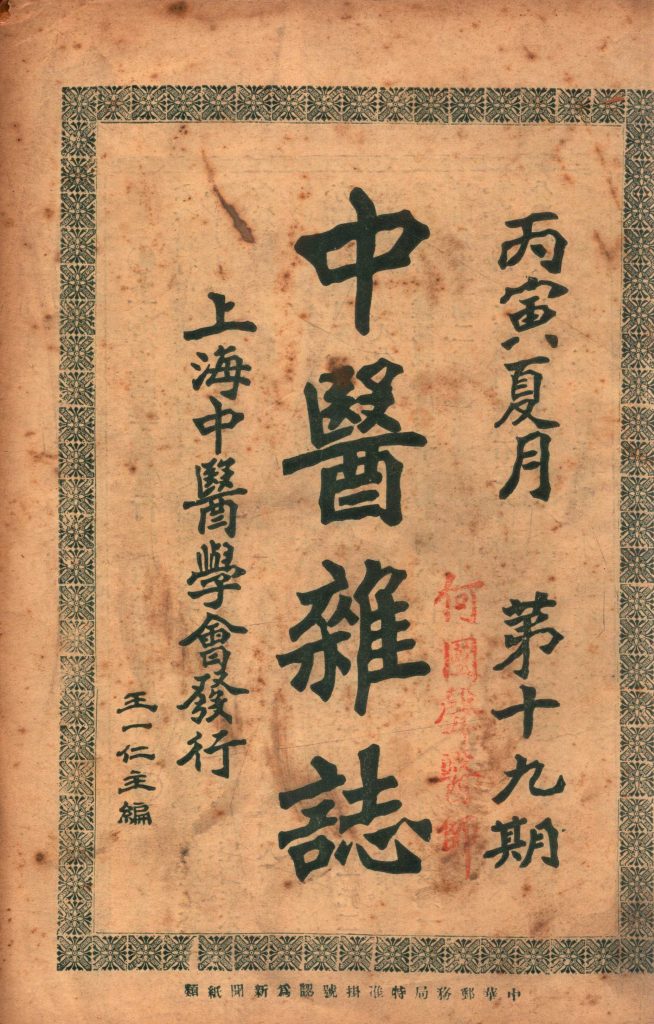 丙寅夏月 第十九期
何國聲醫師
中醫雜誌
上海中醫學會發行
王一仁主編
中華郵務局特准掛號認爲新聞紙類